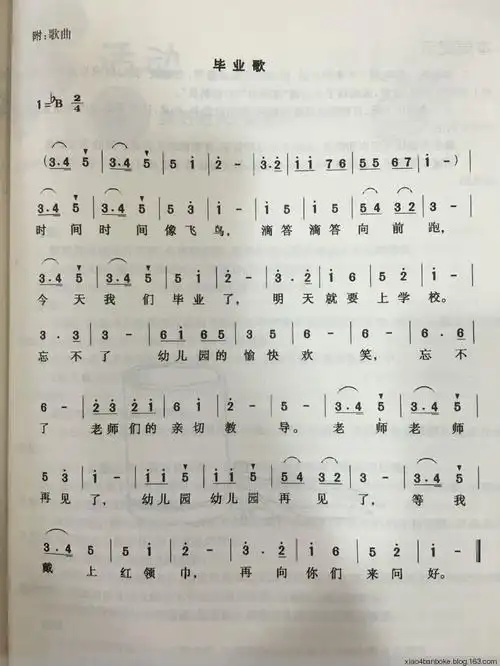 附:歌曲
毕业歌
1=♭B 2/4
(3·4 5 | 3·4 5 | 5 i | 2 - | 3·2 | i i 7 6 | 5 5 6 7 | i - )|
3·4 5 | 3·4 5 | 5 3 | i - | i 5 | i 5 | 5 4 3 2 | 3 - |
时间时间像飞鸟,滴答滴答向前跑,
3·4 5 | 3·4 5 | 5 i | 2 - | 3·2 | i 5 | 6 2 | i - |
今天我们毕业了,明天就要上学校。
3·3 | 3 - | 6 i 6 5 | 3 5 | i·6 | 5 - | 6·6 |
忘不了幼儿园的愉快欢笑,忘不
6 - | 2 3 2 i | 6 i | 2 - | 5 - | 3·4 5 | 3·4 5 |
了老师们的亲切教导。老师老师
5 3 | i - | i i 5 | i i 5 | 5 4 3 2 | 3 - | 3·4 5 |
再见了,幼儿园幼儿园再见了,等我
3·4 5 | 5 i | 2 - | 3·2 | i 5 | 6 2 | i - ‖
戴上红领巾,再向你们来问好。
xiao4banboke.blog.163.com